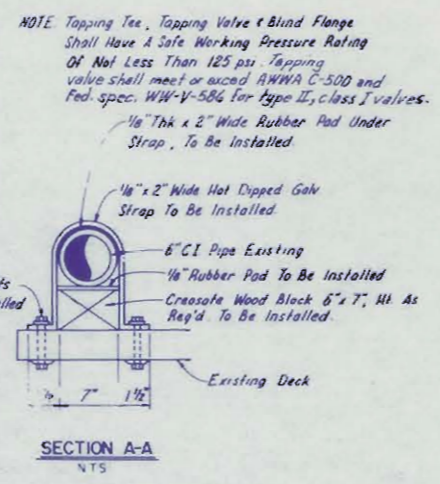 NOTE: Tapping Tee, Tapping Valve & Blind Flange
Shall Have A Safe Working Pressure Rating
Of Not Less Than 125 psi. Tapping
valve shall meet or exced AWWA C-500 and
Fed. spec. WW-V-58G for type II, class I valves.
1/8" Thk x 2" Wide Rubber Pad Under
Strap, To Be Installed.
1/8" x 2" Wide Hot Dipped Galv
Strap To Be Installed.
6" CI Pipe Existing
1/8" Rubber Pad To Be Installed
Creosote Wood Block 6" x 7", Ht. As
Req'd. To Be Installed.
Existing Deck
7" 1 1/2"
SECTION A-A
NTS